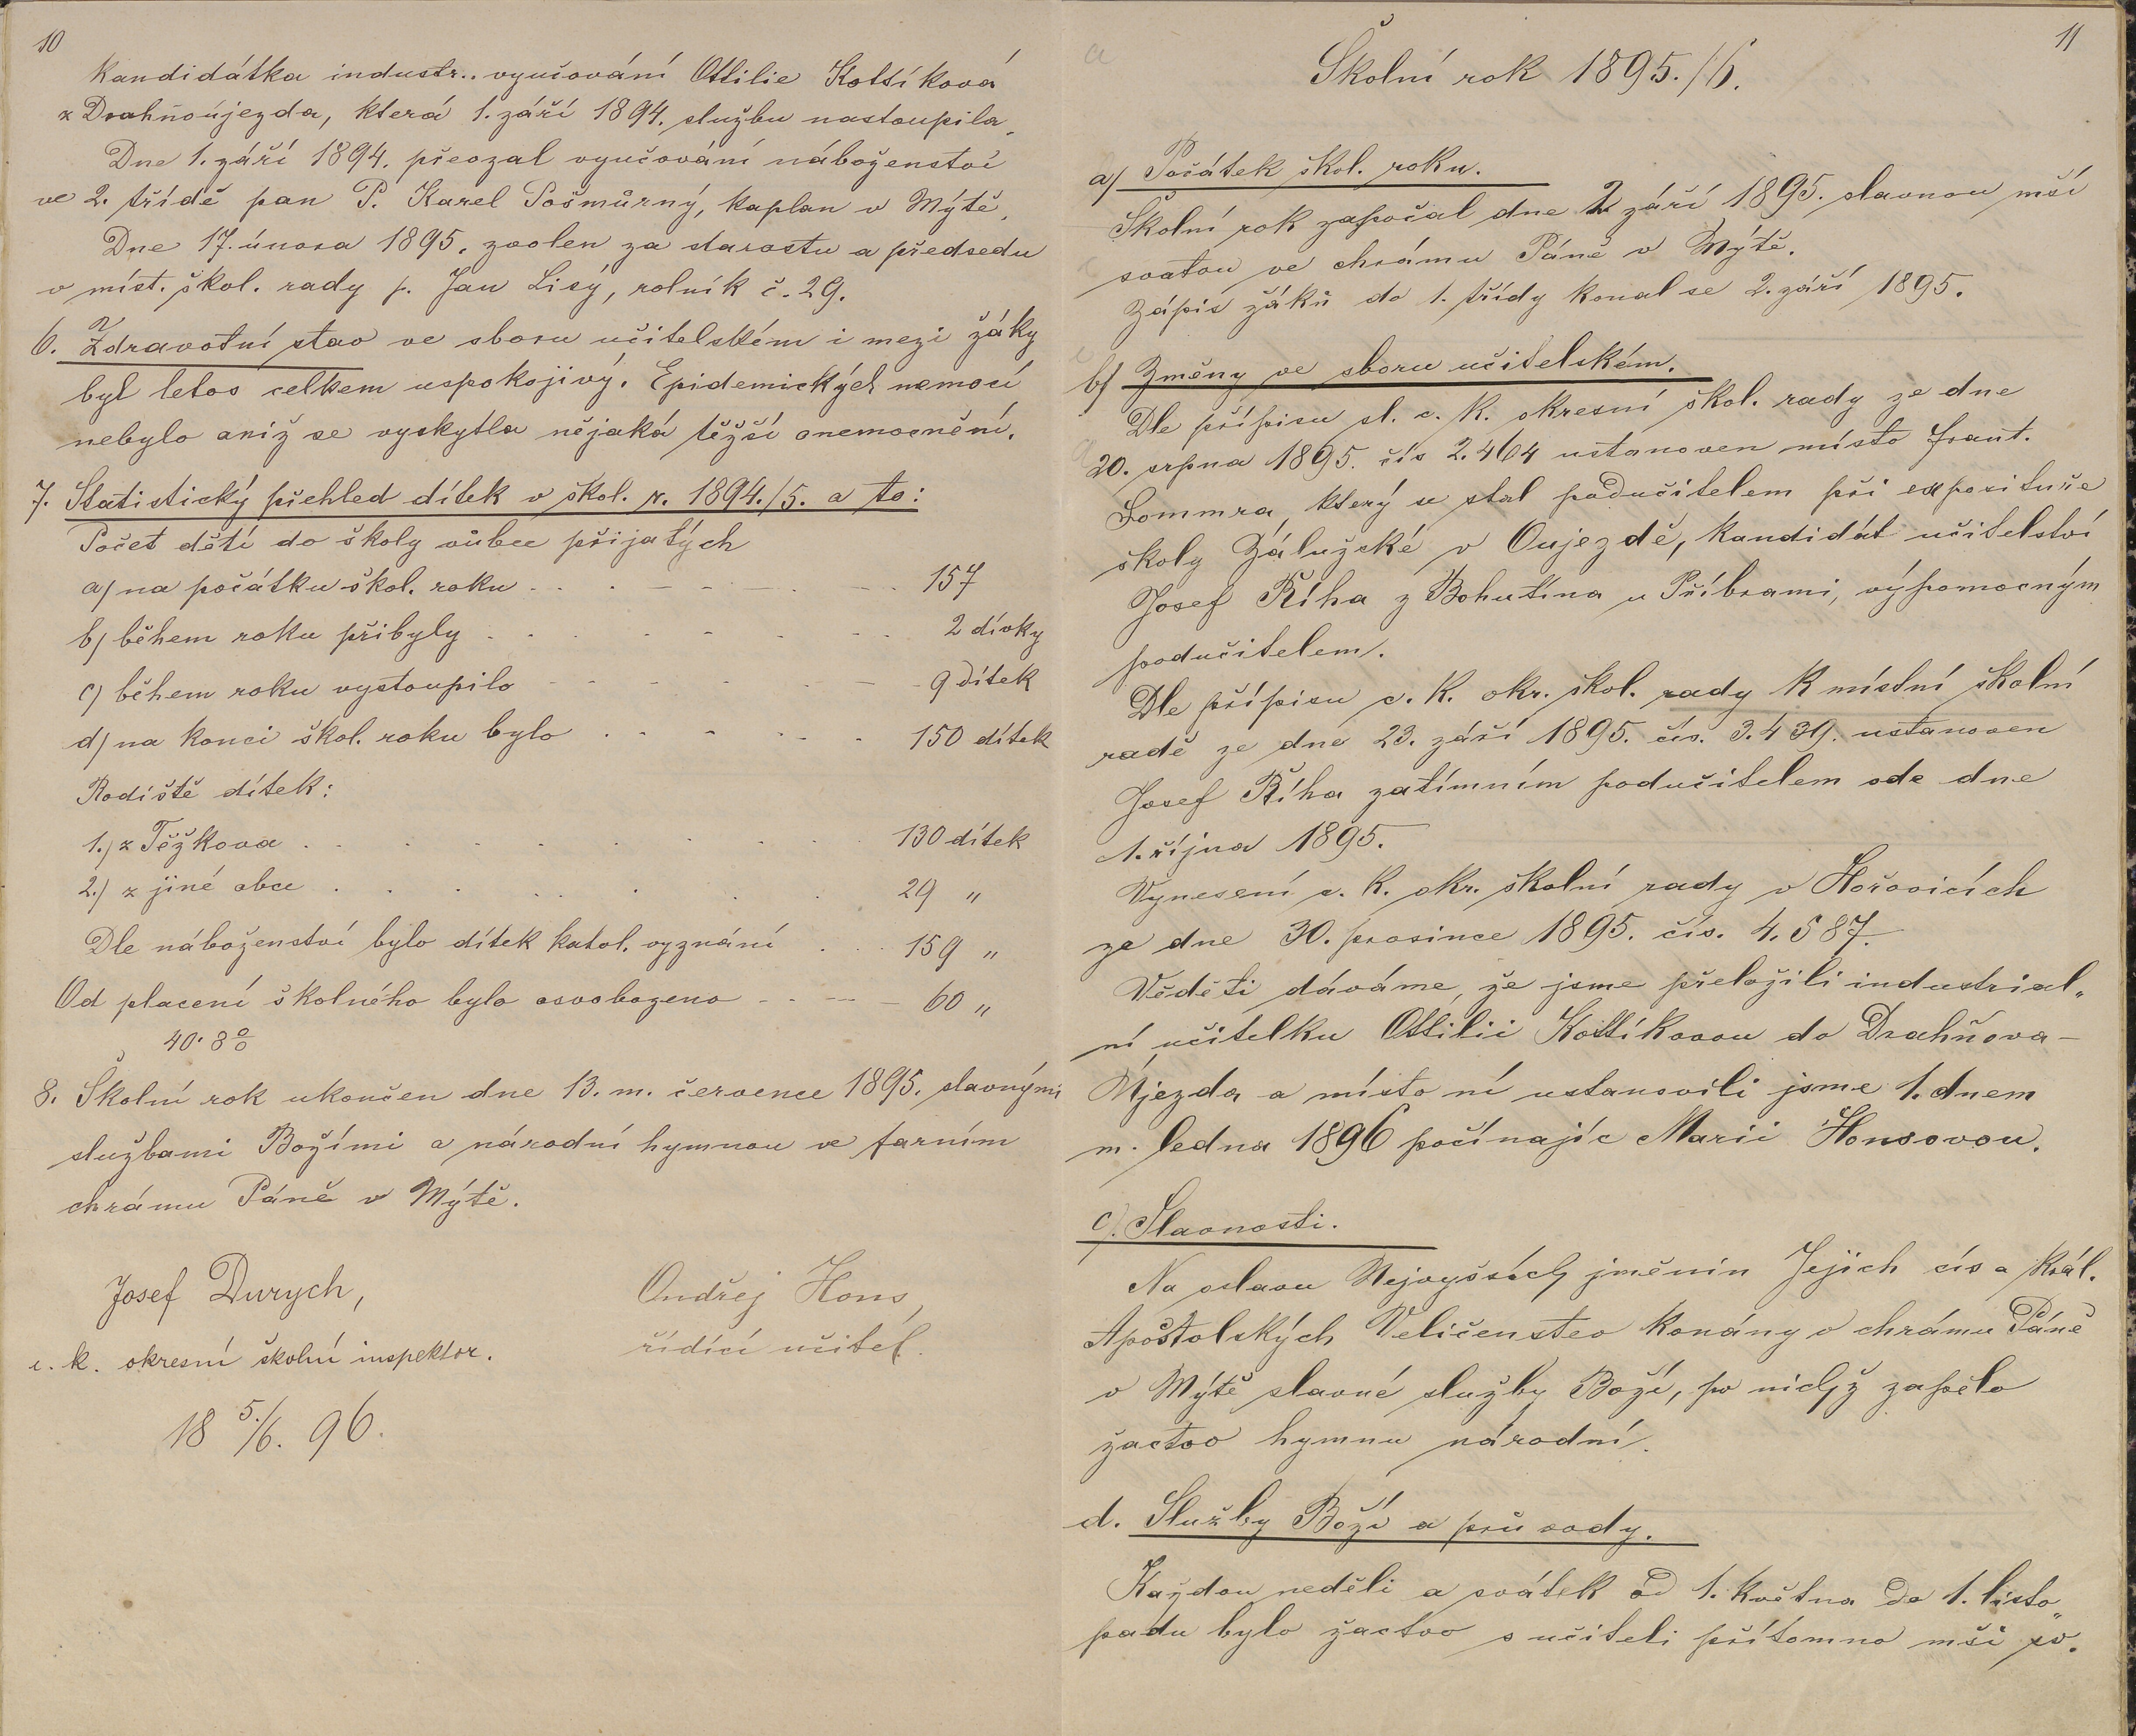 10
Kandidátka industr.. vyučování Ottilie Kottíková
z Drahňoújezda, která 1. září 1894. službu nastoupila.
Dne 1. září 1894. převzal vyučování náboženství
ve 2. třídě pan P. Karel Pošmůrný, kaplan v Mýtě.
Dne 17. února 1895. zvolen za starostu a předsedu
v míst. škol. rady p. Jan Lisý, rolník č. 29.
6. Zdravotní stav ve sboru učitelském i mezi žáky
byl letos celkem uspokojivý. Epidemických nemocí
nebylo aniž se vyskytla nějaká těžší onemocnění.
7. Statistický přehled dítek v škol. r. 1894./5. a to:
Počet dětí do školy vůbec přijatých
a) na počátku škol. roku . . . - - - - . - - . 157
b) během roku přibyly . . . . - - . - . 2 dívky
c) během roku vystoupilo - - - - - - - 9 dítek
d) na konci škol. roku bylo . . - - - . 150 dítek
Rodiště dítek:
1.) z Těžkova . . . . . . . . . 130 dítek
2.) z jiné obce . . . . . . . . 29 "
Dle náboženství bylo dítek katol. vyznání . . . 159 "
Od placení školného bylo osvobozeno - - - - 60 "
40·8 %
8. Školní rok ukončen dne 13. m. července 1895. slavnými
službami Božími a národní hymnou ve farním
chrámu Páně v Mýtě.
Josef Durych, Ondřej Hons,
c. k. okresní školní inspektor. řídící učitel.
18 5./6. 96.
11
Školní rok 1895./6.
a) Počátek škol. roku.
Školní rok započal dne 2 září 1895. slavnou mší
svatou ve chrámu Páně v Mýtě.
Zápis žáků do 1. třídy konal se 2. září 1895.
b) Změny ve sboru učitelském.
Dle přípisu sl. c. k. okresní škol. rady ze dne
20. srpna 1895. čís 2.464 ustanoven místo Frant.
Sommra, který se stal podučitelem při expozituře
školy Zálužské v Oujezdě, kandidát učitelství
Josef Říha z Bohutína u Příbrami, výpomocným
podučitelem.
Dle přípisu c. k. okr. škol. rady k místní školní
radě ze dne 23. září 1895. čís. 3.439. ustanoven
Josef Říha zatímním podučitelem ode dne
1. října 1895.
Vynesení c. k. okr. školní rady v Hořovicích
ze dne 30. prosince 1895. čís. 4.587.
Věděti dáváme, že jsme přeložili industrial„
ní učitelku Ottilii Kottíkovou do Drahňova-
Újezda a místo ní ustanovili jsme 1. dnem
m. ledna 1896 počínajíc Marii Honsovou.
c). Slavnosti.
Na oslavu Nejvyšších jměnin Jejich cís a král.
Apoštolských Veličenstev konány v chrámu Páně
v Mýtě slavné služby Boží, po nichž zapělo
žactvo hymnu národní.
d. Služby Boží a průvody.
Každou neděli a svátek od 1. května do 1. listo„
padu bylo žactvo s učiteli přítomno mši sv.